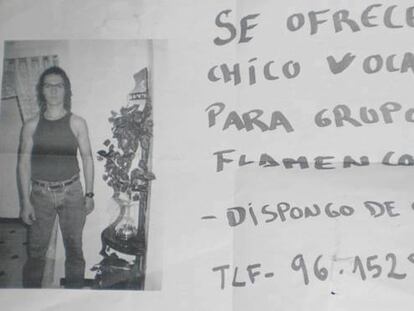 SE OFRECE
CHICO VOCA
PARA GRUPO
FLAMENCO
- DISPONGO DE
TLF- 96.152